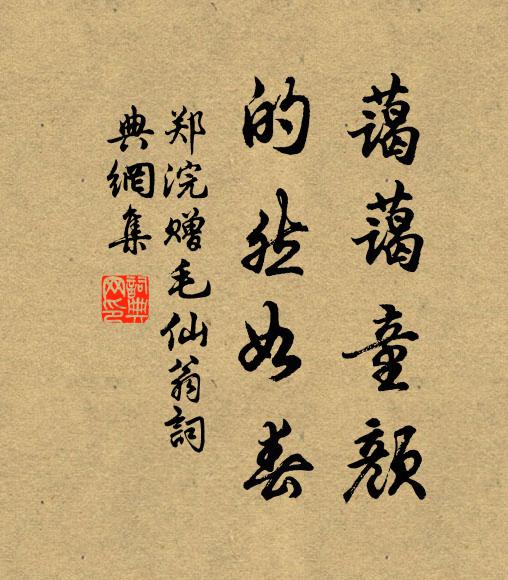 藹藹童顏
的然如春
郑浣赠毛仙翁詞
典網集
詞典
网印